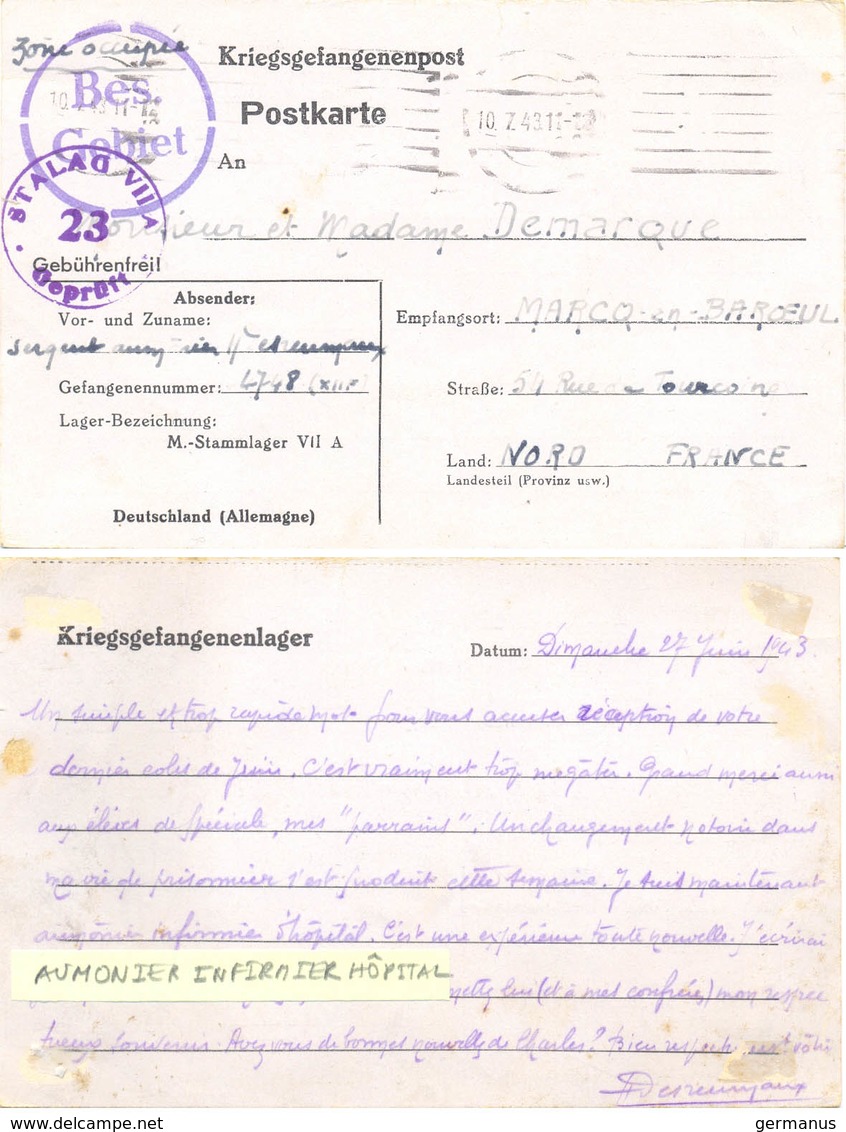 Zone occupée
Bes.
Gebiet
Kriegsgefangenenpost
Postkarte
10.7.43.11-12
10.7.43.11-12
An
STALAG VII A
23
Geprüft
Monsieur et Madame Demarque
Gebührenfrei!
Absender:
Vor- und Zuname:
Sergent aumônier Desreumaux
Gefangenennummer: 4748
Lager-Bezeichnung:
M.-Stammlager VII A
Deutschland (Allemagne)
Empfangsort: MARCQ-en-BARŒUL
Straße: 54 Rue de Tourcoing
Land: NORD FRANCE
Landesteil (Provinz usw.)
Kriegsgefangenenlager
Datum: Dimanche 27 Juin 1943.
Un simple et trop rapide mot pour vous accuser réception de votre
dernier colis de Juin. C'est vraiment trop me gâter. Grand merci aussi
aux élèves de spéciale, mes "parrains". Un changement notoire dans
ma vie de prisonnier s'est produit cette semaine. Je suis maintenant
aumônier infirmier d'hôpital. C'est une expérience toute nouvelle. J'écrirai
AUMONIER INFIRMIER HÔPITAL
lui (et à mes confrères) mon respec
tueux souvenir. Avez vous de bonnes nouvelles de Charles? Bien respectueust vôtre
Desreumaux
germanus